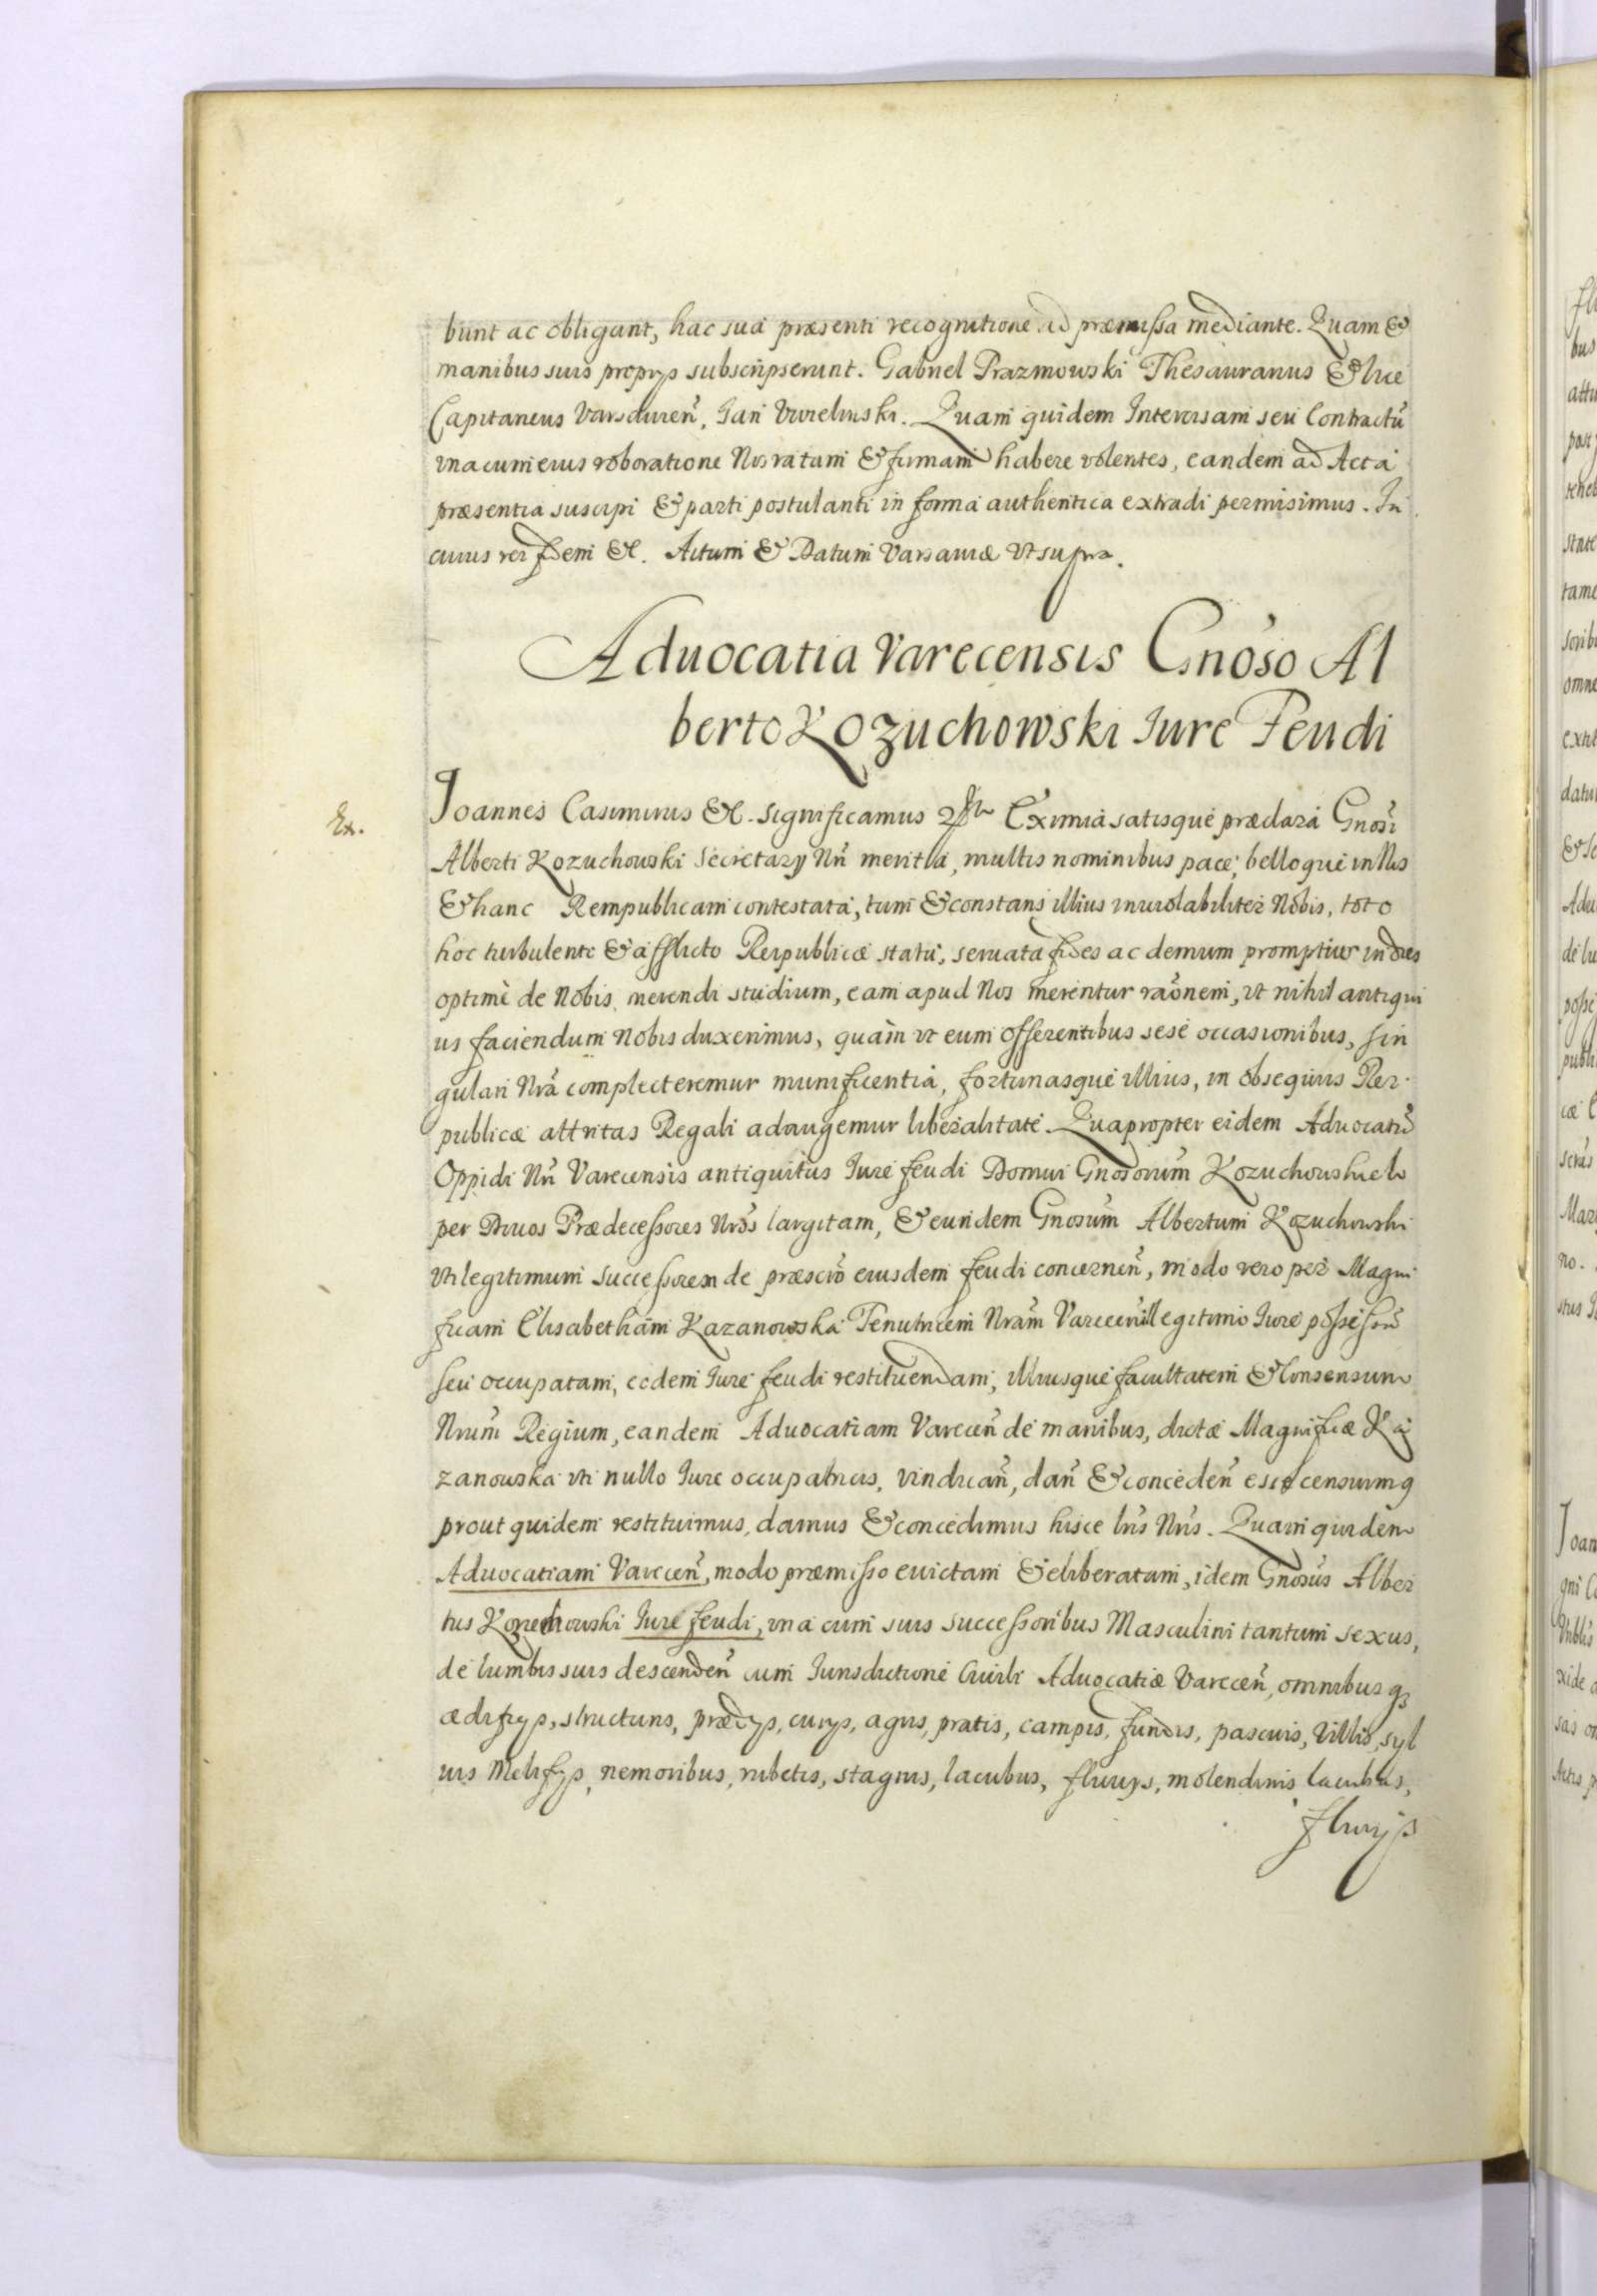 bunt ac obligant, hac sua præsenti recognitione ad præmissa mediante. Quam &
manibus suis proprys subscripserunt. Gabriel Prazmowski Thesauranus & Vice
Capitaneus Varsauien̄, Jan Vwielinski. Quam quidem Intercisam seu Contractū
vna cum eius roboratione Nos ratam & firmam habere volentes, eandem ad Acta
præsentia suscipi & parti postulanti in forma authentica extradi permisimus. In
cuius rei fidem &c. Actum & Datum Varsauiæ vt supra.
Aduocatia Varecensis Gnōso Al
berto Kozuchowski Iure Feudi
Ex.
Joannes Casimirus &c. Significamus Eximia satisque præclara Gnōsi
Alberti Kozuchowski Secretarÿ Nrī merita, multis nominibus pace, belloque in Nos
& hanc Rempublicam contestata, tum & constans illius inuiolabiliter Nobis, toto
hoc turbulento & afflicto Reipublicæ statu, seruata fides ac demum promptius indies
optimè de Nobis merendi studium, eam apud Nos merentur raōnem, vt nihil antiqui
us faciendum Nobis duxerimus, quàm vt eum offerentibus sese occasionibus, sin
gulari Nrā complecteremur munificentia, fortunasque illius, in obsequiis Rei
publicæ attritas Regali adaugemur liberalitate. Quapropter eidem Aduocatiā
Oppidi Nrī Varecensis antiquitus Iure feudi Domui Gnosorūm Kozuchowskich
per Diuos Prædecessores Nrōs largitam, & eundem Gnosūm Albertum Kozuchowski
vti legitimum successorem de præscio eiusdem feudi concernen̄, modo vero per Magni
ficam Elisabetham Kazanowska Tenutricem Nrām Varecen̄ illegitimo Iure possessā
seu occupatam, eodem Iure feudi restituendam, illiusque facultatem & Consensum
Nrūm Regium, eandem Aduocatiam Varecen̄ de manibus, dictæ Magnificæ Ka
zanowska vti nullo Iure occupatricis, vindican̄, dan̄ & conceden̄ esse censuimq
prout quidem restituimus, damus & concedimus hisce lrīs Nrīs. Quam quidem
Aduocatiam Varecen̄, modo præmisso euictam & eliberatam, idem Gnosūs Alber
tus Kozuchowski Iure feudi, vna cum suis successoribus Masculini tantum sexus,
de lumbis suis descenden̄ cum Iurisdictione Ciuili Aduocatiæ Varecen̄, omnibus q3
ædificys, structuris, prædys, curys, agris, pratis, campis, fundis, pascuis, Villis, syl
uis Melifys, nemoribus, rubetis, stagnis, lacubus, fluuys, molendinis lacubus,
fluuijs